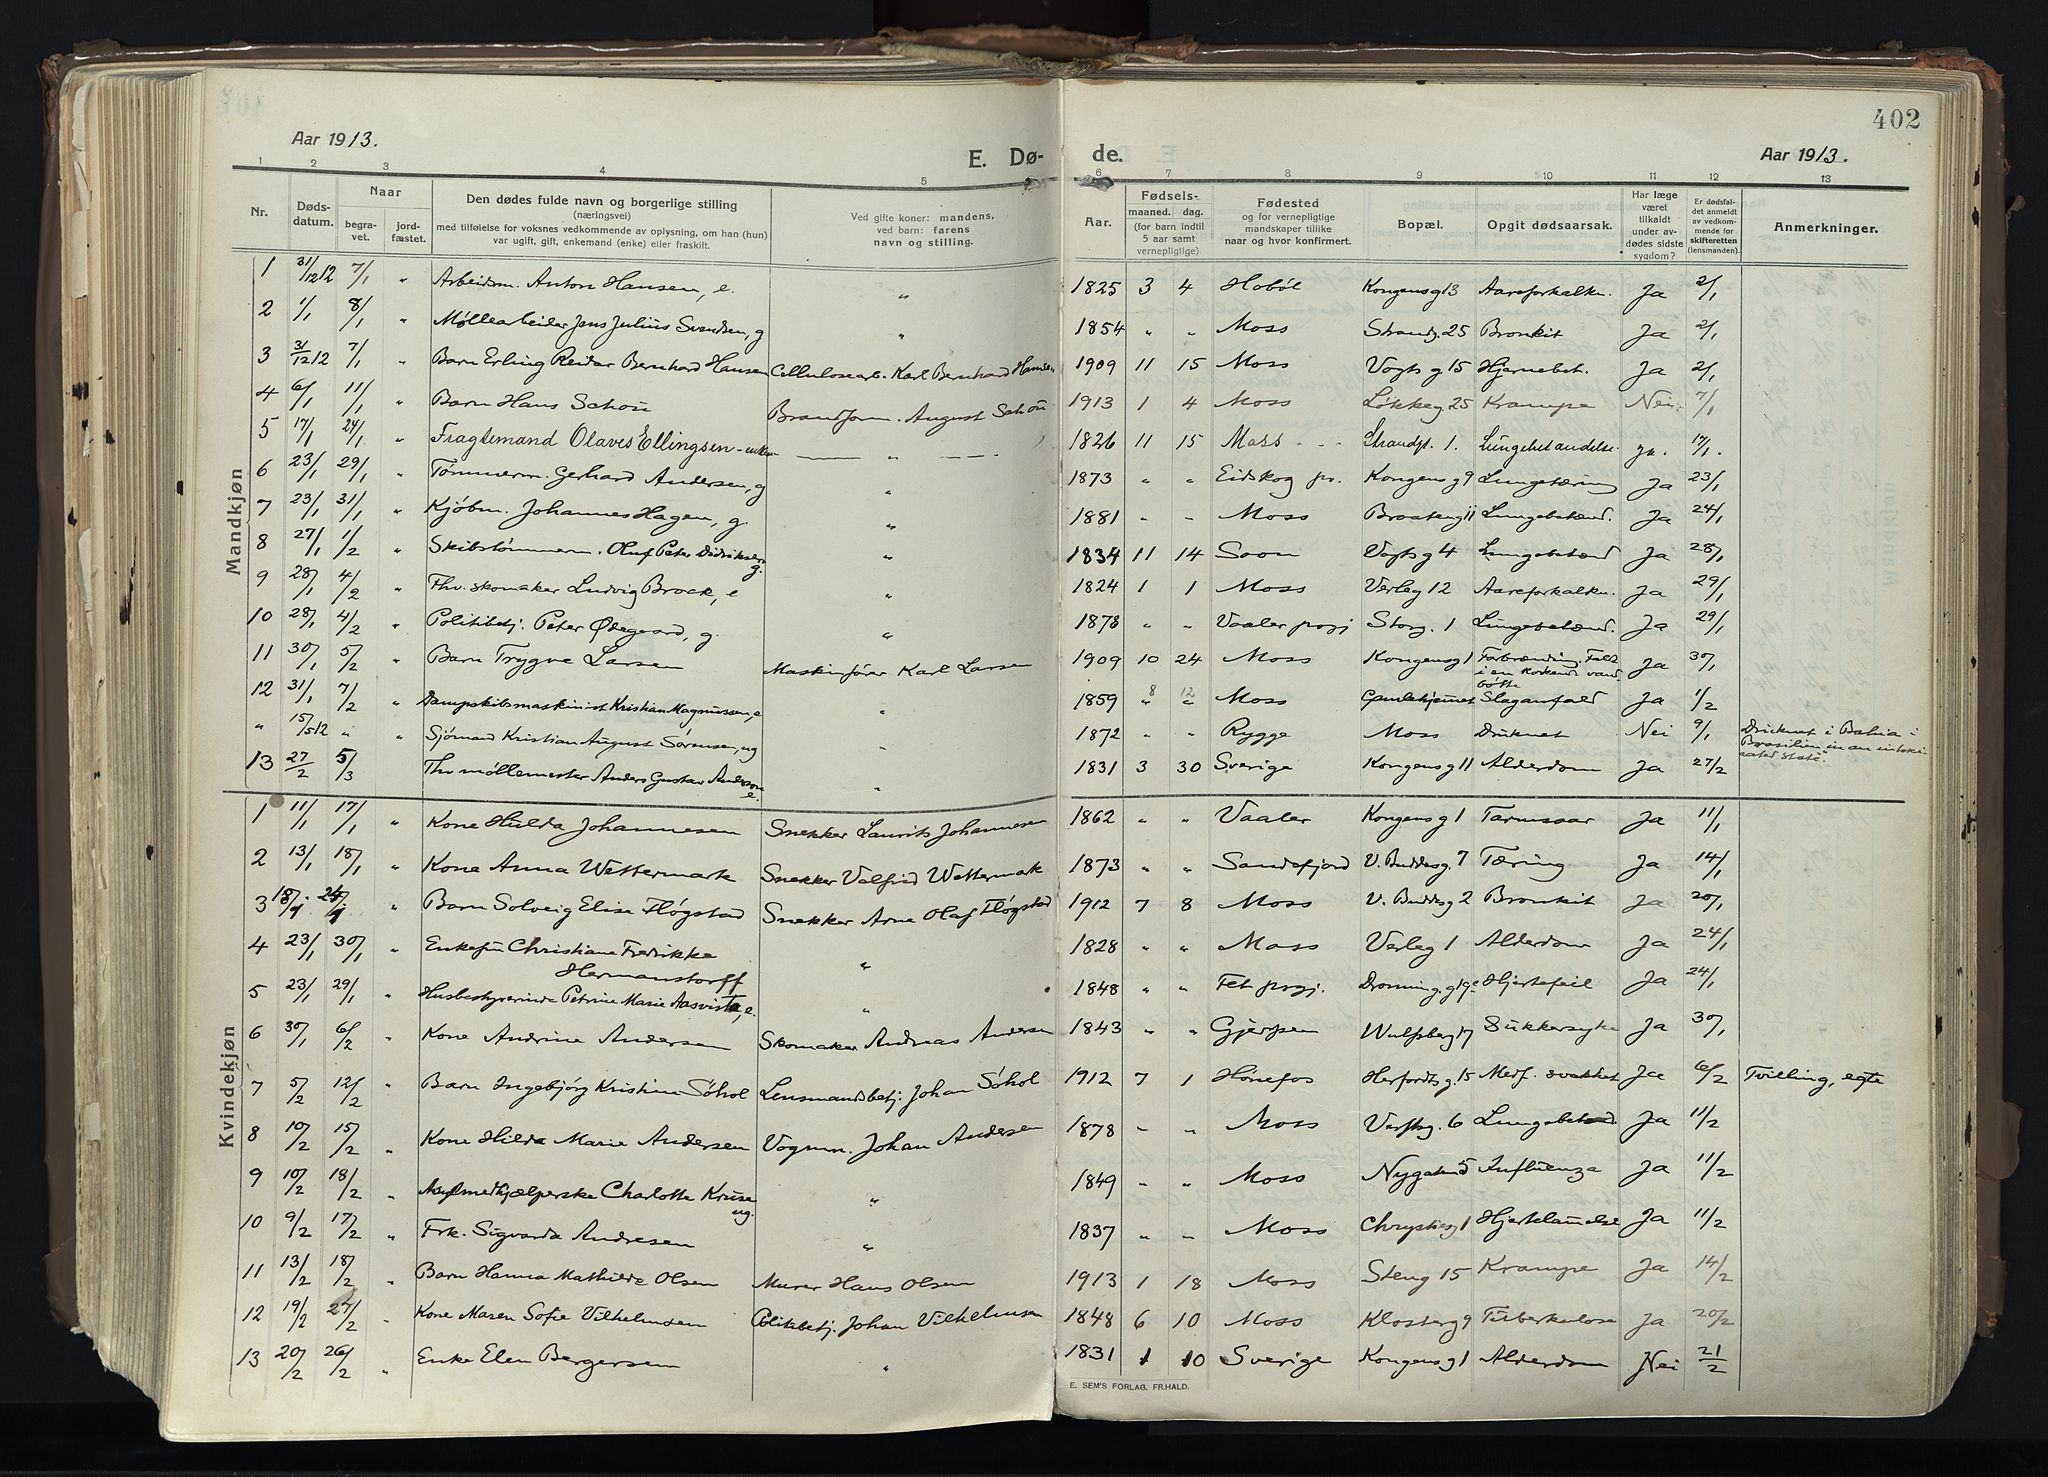 402
Aar 1913.
E. Dø-
de.
Aar 1913.
1 2 3 4 5 6 7 8 9 10 11 12 13
Nr.
Døds-
datum.
Naar
begra-
vet.
jord-
fæstet.
Den dødes fulde navn og borgerlige stilling
(næringsvei)
med tilføielse for voksnes vedkommende av oplysning, om han (hun)
var ugift, gift, enkemand (enke) eller fraskilt.
Ved gifte koner: mandens,
ved barn: farens
navn og stilling.
Aar.
Fødsels-
maaned. dag.
(for barn indtil
5 aar samt
vernepligtige).
Fødested
og for vernepligtige
mandskaper tillike
naar og hvor konfirmert.
Bopæl.
Opgit dødsaarsak.
Har læge
været
tilkaldt
under av-
dødes sidste
sygdom?
Er dødsfal-
det anmeldt
av vedkom-
mende for
skifteretten
(lensmanden).
Anmerkninger.
Mandkjøn
1 31/12 12 7/1 " Arbeidsm. Anton Hansen, e. " 1825 3 4 Hobøl Kongensg 13 Aareforkalkn. Ja 2/1
2 1/1 8/1 " Møllearbeider Jens Julius Svendsen, g " 1854 " " Moss Strandg. 25 Bronkit Ja 2/1
3 31/12 12 7/1 " Barn Erling Reidar Bernhard Hansen Cellulosearb. Karl Bernhard Hansen 1909 11 15 Moss Vogts g 15 Hjernebet. Ja 2/1
4 6/1 11/1 " Barn Hans Schou August Schou 1913 1 4 Moss Løkkeg 25 Krampe Nei 7/1
5 17/1 24/1 " Fragtemand Olaves Ellingsen - enkem " 1826 11 15 Moss Strandg. 1. Lungebetandelse. ja. 17/1.
6 23/1 29/1 " Tømmerm. Gerhard Andersen, g " 1873 " " Eidskog pr. Kongens g 9 Lungetæring Ja 23/1
7 23/1 31/1 " Kjøbm. Johannes Hagen, g. " 1881 " " Moss Braaten g 11 Lungebetænd. Ja 24/1
8 27/1 1/2 " Skibstømmerm. Oluf Peter Didriksen
g. " 1834 11 14 Soon Vogts g 4 Lungebetænd Ja 28/1
9 28/1 4/2 " Fhv. skomaker Ludvig Brock, e " 1824 1 1 Moss Verleg 12 Aareforkalkn. Ja 29/1
10 28/1 4/2 " Politibetj. Peter Ødegaard, g. " 1878 " " Vaaler prgj Storg. 1 Lungebetænd. Ja 29/1
11 30/1 5/2 " Barn Trygve Larsen Maskinfører Karl Larsen 1909 10 24 Moss Kongensg 1 Forbrænding. Falt
i en kokende vand
bøtte Ja 30/1
12 31/1 7/2 " Dampskibsmaskinist Kristian Magnussen, e " 1859 8 12 Moss Gamlehjemmet Slaganfald Ja 1/2
" 15/5 12 " " Sjømand Kristian August Sørensen, ug " 1872 " " Rygge Moss Druknet Nei 9/1 Druknet i Bahia i
Brasilien, in an intoxi
cated state.
13 27/2 5/3 Fhv møllemester Anders Gustav Anderson
e. " 1831 3 30 Sverige Kongens g 11 Alderdom Ja 27/2
Kvindekjøn
1 11/1 17/1 " Kone Hulda Johannesen Snekker Laurits Johannesen 1862 " " Vaaler Kongens g 1 Tarmsaar Ja 11/1
2 13/1 18/1 " Kone Anna Wettermark Snekker Valfrid Wettermark 1873 " " Sandefjord V. Buddes g. 7 Tæring Ja 14/1
3 18/1 25/1 " Barn Solveig Elise Fløgstad Snekker Arne Olaf Fløgstad 1912 7 8 Moss V. Buddes g 2 Bronkit Ja 20/1
4 23/1 30/1 " Enkefru Christiane Fredrikke
Hermanstorff " 1828 " " Moss Verleg 1 Alderdom Ja 24/1
5 23/1 29/1 " Husbestyrerinde Petrine Marie, e. " 1848 " " Fet prgj. Dronning. g 19c Hjertefeil Ja 24/1
6 30/1 6/2 " Kone Andrine Andersen Skomaker Andreas Andersen 1843 " " Gjerpen Wulfsberg 17 Sukkersyke Ja 30/1
7 5/2 12/2 " Barn Ingebjørg Kristine Søhol Lensmandsbetj. Johan Søhol 1912 7 1 Hønefos Herfordts g. 15 Medf. svakhet Ja 6/2 Tvilling, egte
8 10/2 15/2 " Kone Hilda Marie Andersen Vognm. Johan Andersen 1878 " " Moss 6 Lungebetænd Ja 11/2
9 10/2 18/2 " Asylmedhjælperske Charlotte Kruse
ug. " 1849 " " Moss Nygaten 5 Influenza Ja 11/2
10 9/2 17/2 " Frk. Sigvarda Andresen " 1837 " " Moss Chrysties g 1 Hjertelammelse Ja 11/2
11 13/2 18/2 " Barn Hanna Mathilde Olsen Murer Hans Olsen 1913 1 18 Moss Steng 15 Krampe Ja 14/2
12 19/2 27/2 " Kone Maren Sofie Vilhelmsen Politibetj. Johan Vilhelmsen 1848 6 10 Moss Klosterg 9 Tuberkulose Ja 20/2
13 20/2 26/2 " Enke Elen Bergersen " 1831 1 10 Sverige Kongens g 1 Alderdom Nei 21/2
E. SEM'S FORLAG, FR.HALD.